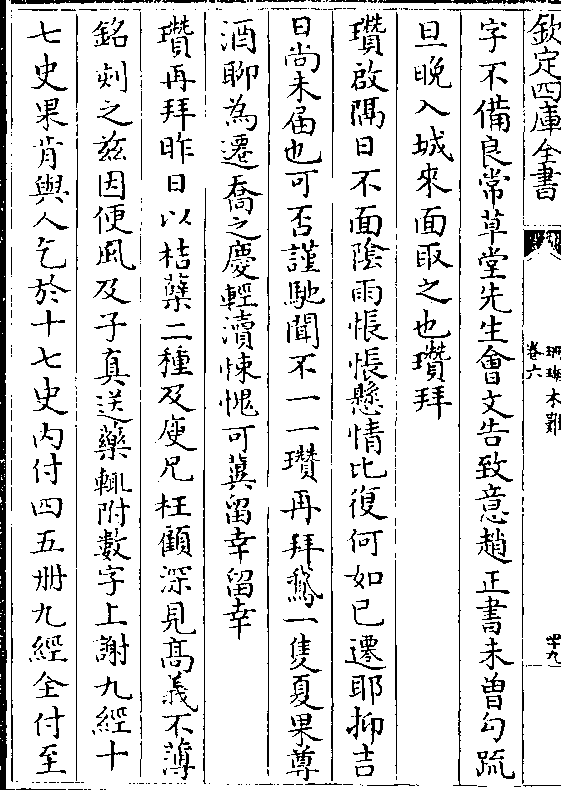 欽定四庫全書
珊瑚木難
卷六
字不備良常草堂先生會文告致意趙正書未曽勾䟽
旦晚入城來面取之也瓚拜
瓚啟隅日不面陰雨悵悵懸情比復何如已遷耶抑吉
日尚未届也可否謹馳聞不一一瓚再拜鵝一隻夏果尊
酒聊為遷喬之慶輕瀆悚愧可冀留幸留幸
瓚再拜昨日以桔蘗二種及庾兄枉顧深見髙義不薄
銘刻之兹因便風及子真送藥輒附數字上謝九經十
七史果肯與人乞於十七史内付四五冊九經全付至